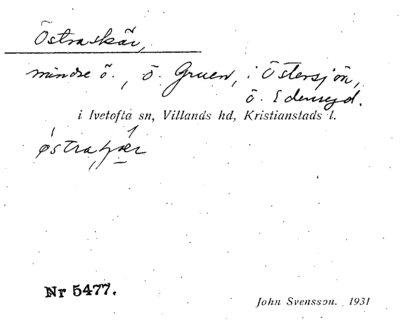 Östraskär,
mindre ö., ö. Gruen, i Östersjön,
ö. Edenryd.
i Ivetofta sn, Villands hd, Kristianstads l.
Nr 5477.
John Svensson. 1931